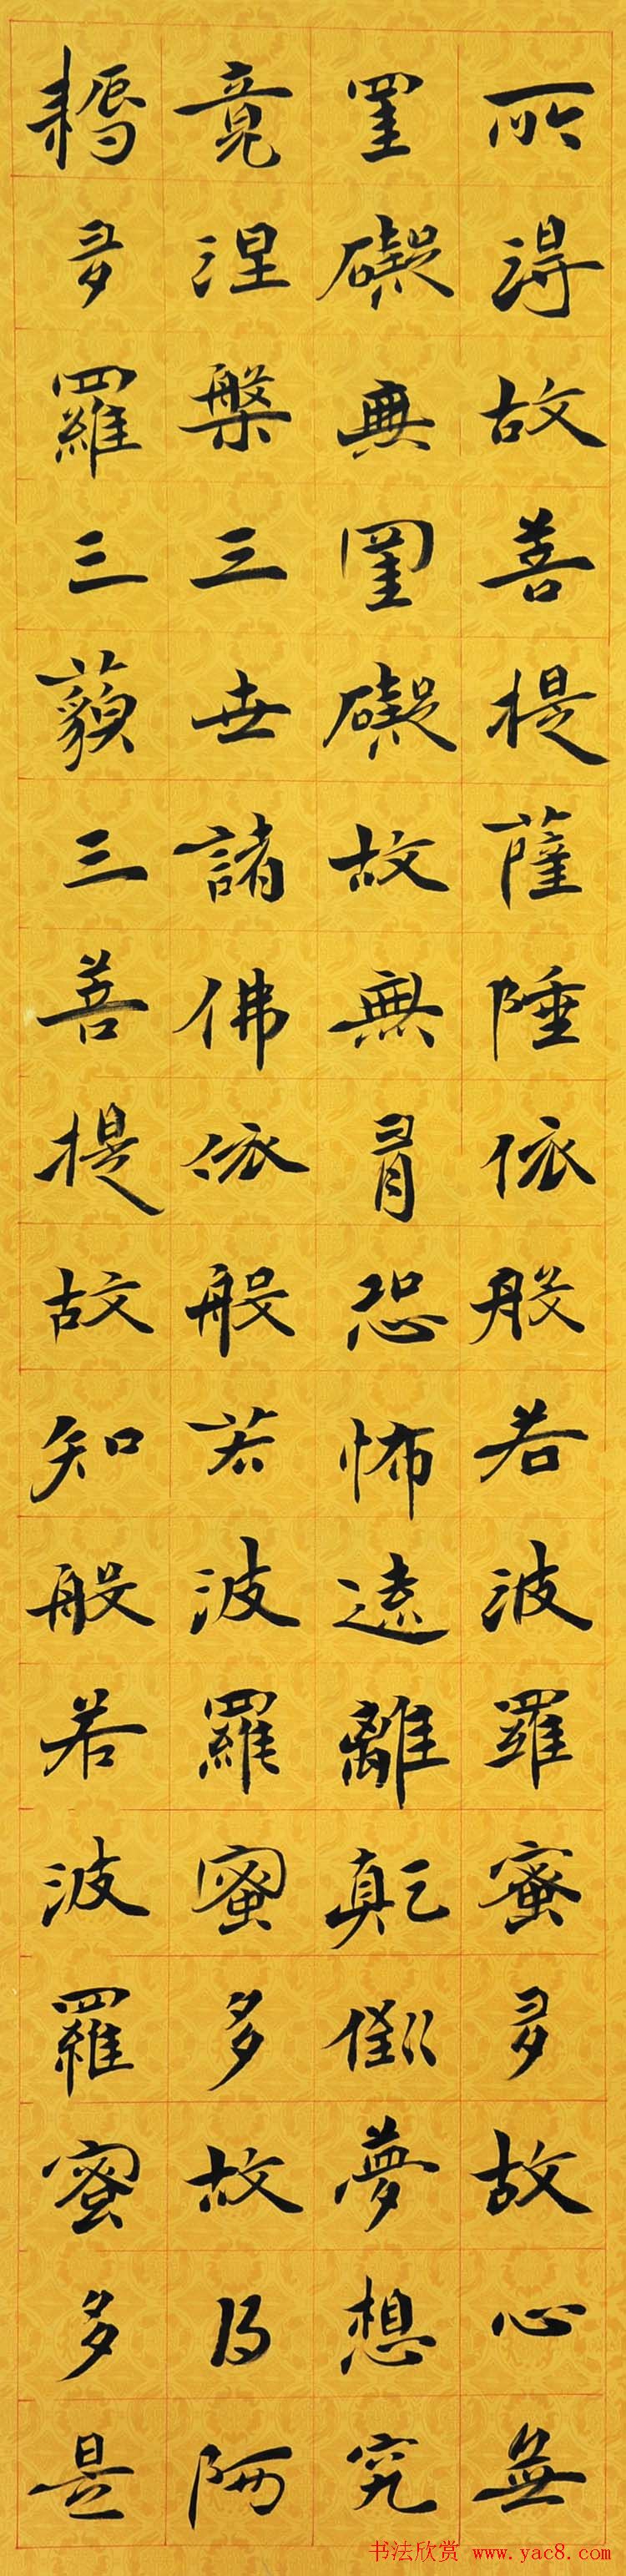 所得故菩提薩陲依般若波羅蜜多故心無
罣礙無罣礙故無有恐怖遠離顛倒夢想究
竟涅槃三世諸佛依般若波羅蜜多故得阿
耨多羅三藐三菩提故知般若波羅蜜多是
书法欣赏 www.yac8.com